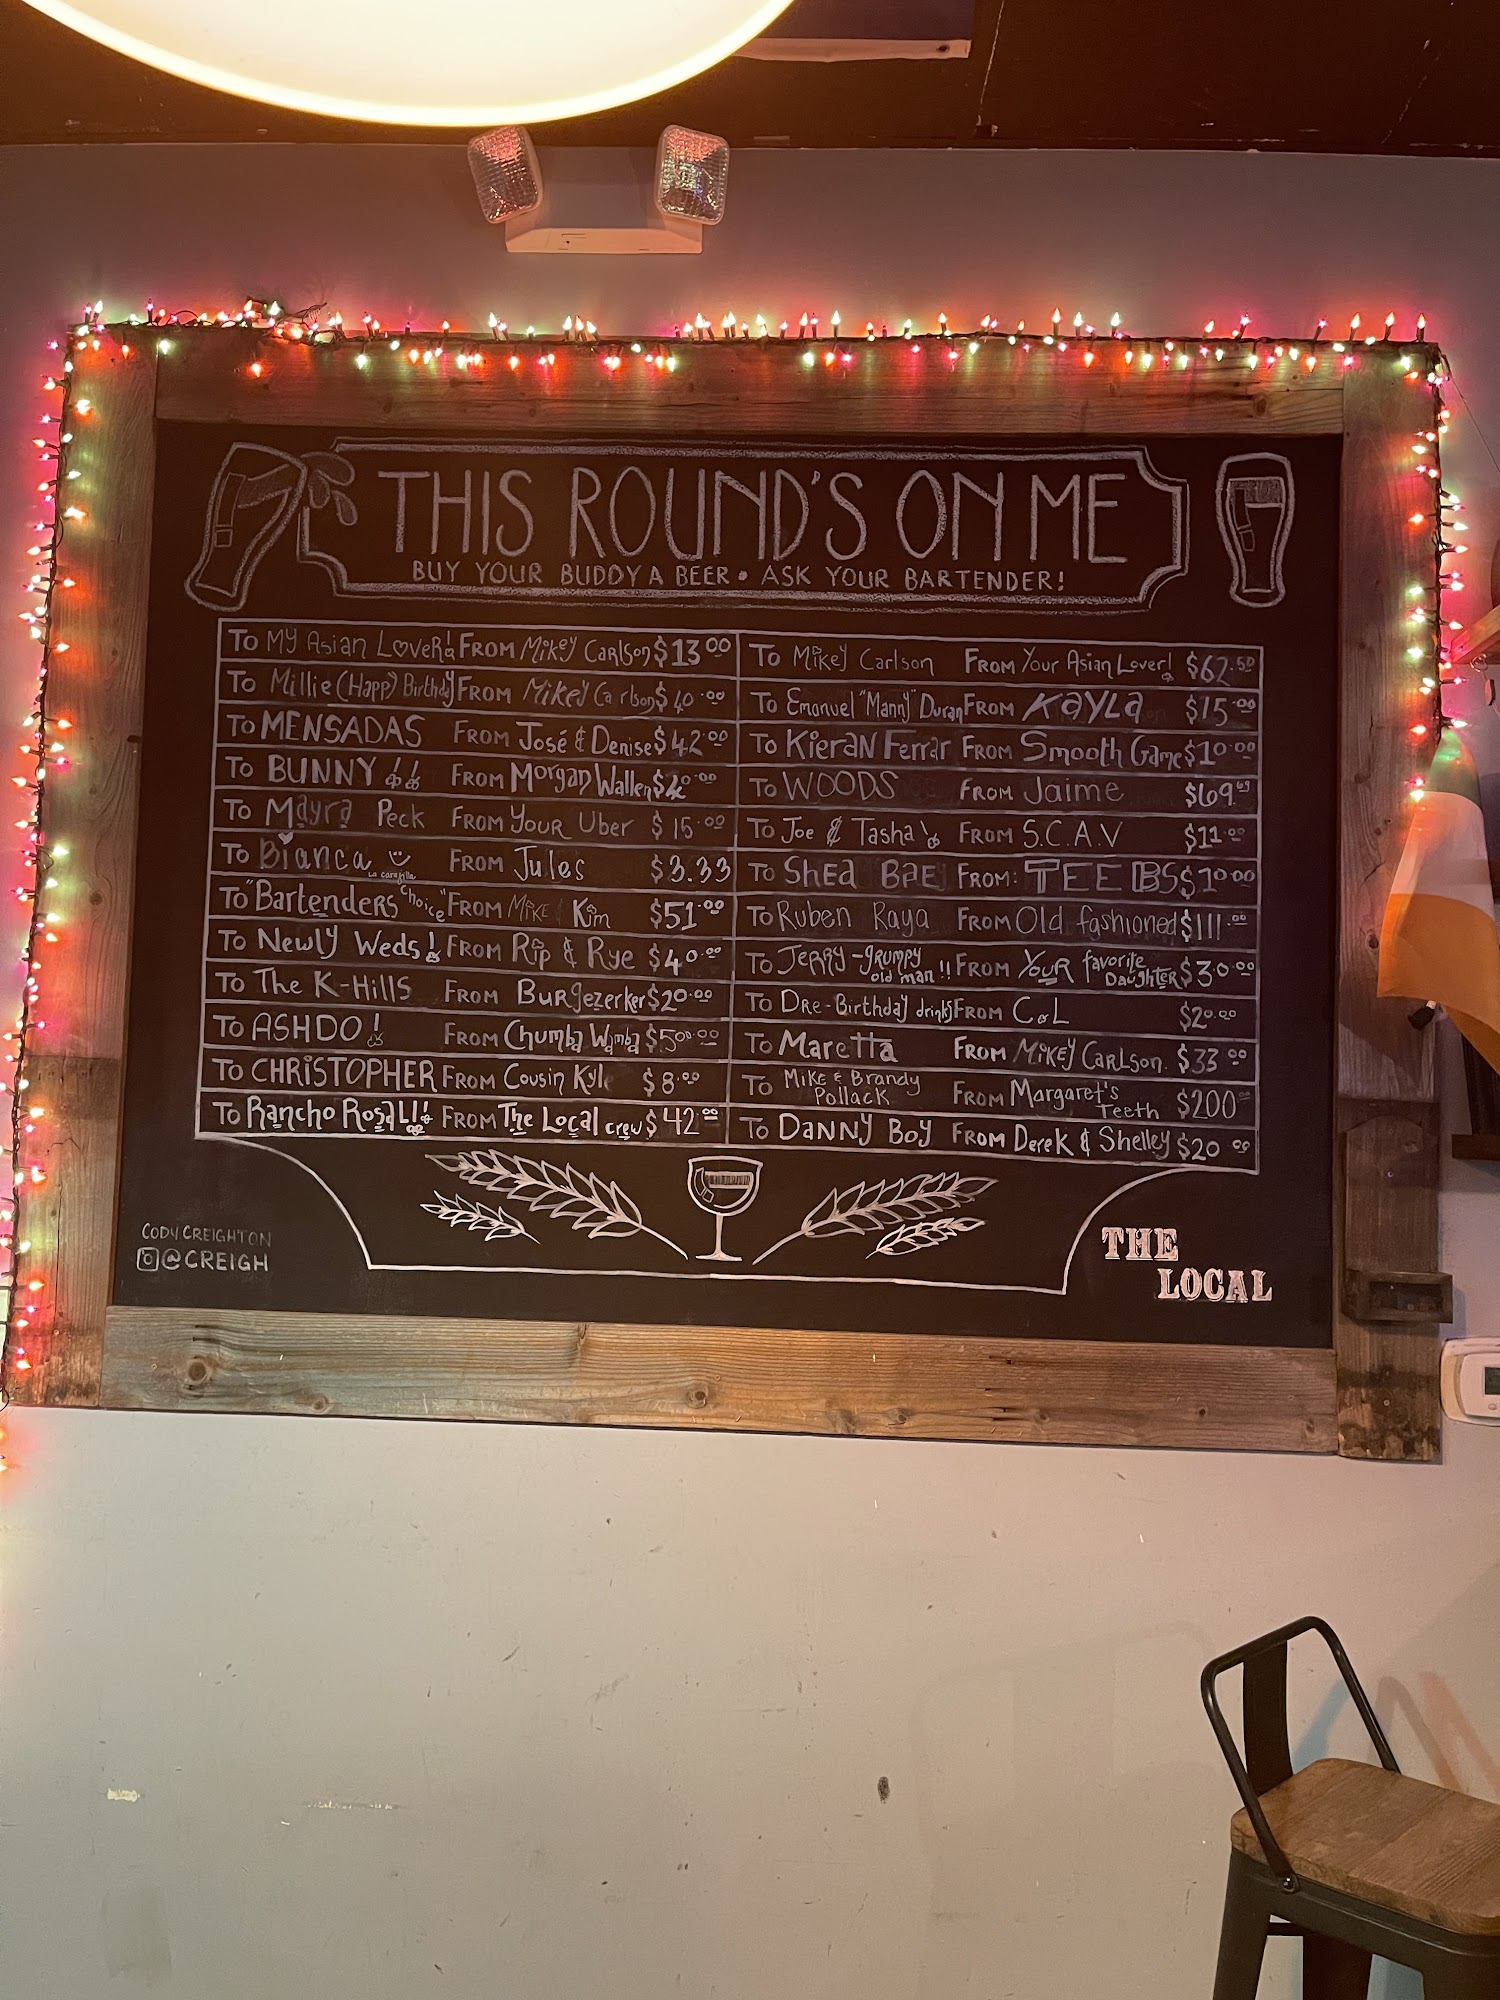 THIS ROUND'S ON ME
BUY YOUR BUDDY A BEER • ASK YOUR BARTENDER!
TO My Asian Lover! FROM Mikey Carlson $13.00
TO Millie (Happy) Birthday FROM Mikey Carlson $40.00
TO MENSADAS FROM José & Denise $42.00
TO BUNNY!! FROM Morgan Wallen $40.00
TO Mayra Peck FROM Your Uber $15.00
TO Bianca FROM Jules $3.33
TO "Bartenders Choice" FROM Mike & Kim $51.00
TO Newly Weds! FROM Rip & Rye $40.00
TO The K-Hills FROM Burgezerker $20.00
TO ASHDO! FROM Chumba Wamba $500.00
TO CHRISTOPHER FROM Cousin Kyle $8.00
TO Rancho Rosal!! FROM The Local crew $42.00
TO Mikey Carlson FROM Your Asian Lover! $62.50
TO Emanuel "Manny" Duran FROM KAYLA $15.00
TO Kieran Ferrar FROM Smooth Game $10.00
TO WOODS FROM Jaime $69.69
TO Joe & Tasha! FROM S.C.A.V $11.00
TO Shea BAE FROM: TEE BS $10.00
TO Ruben Raya FROM Old fashioned $111.00
TO Jerry-grumpy old man!! FROM Your favorite Daughter $30.00
TO Dre-Birthday drinks FROM C&L $20.00
TO Maretta FROM Mikey Carlson. $33.00
TO Mike & Brandy Pollack FROM Margaret's Teeth $200.00
TO Danny Boy FROM Derek & Shelley $20.00
CODY CREIGHTON
@CREIGH
THE
LOCAL